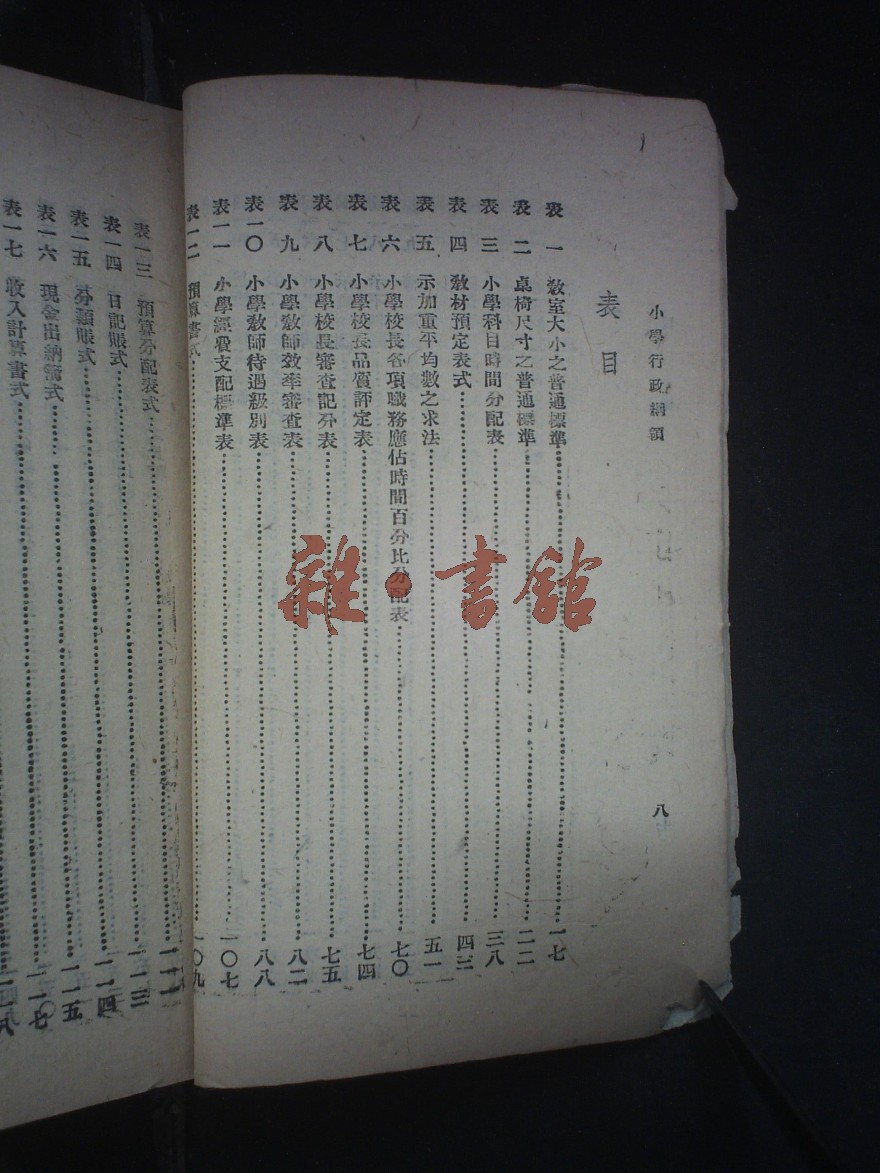 小學行政綱領
八
表目
表一 教室大小之普通標準 一七
表二 桌椅尺寸之普通標準 二二
表三 小學科目時間分配表 三八
表四 教材預定表式 四三
表五 示加重平均數之求法 五一
表六 小學校長各項職務應佔時間百分比分配表 七〇
表七 小學校長品質評定表 七四
表八 小學校長審查記分表 七五
表九 小學教師效率審查表 八二
表一〇 小學教師待遇級別表 八八
表一一 小學經費支配標準表 一〇七
表一二 預算書式 一〇九
表一三 預算分配表式
表一四 日記賬式 一一三
表一五 分類賬式 一一四
表一六 現金出納簿式 一一五
表一七 收入計算書式 一一七
一一八
雜·書館